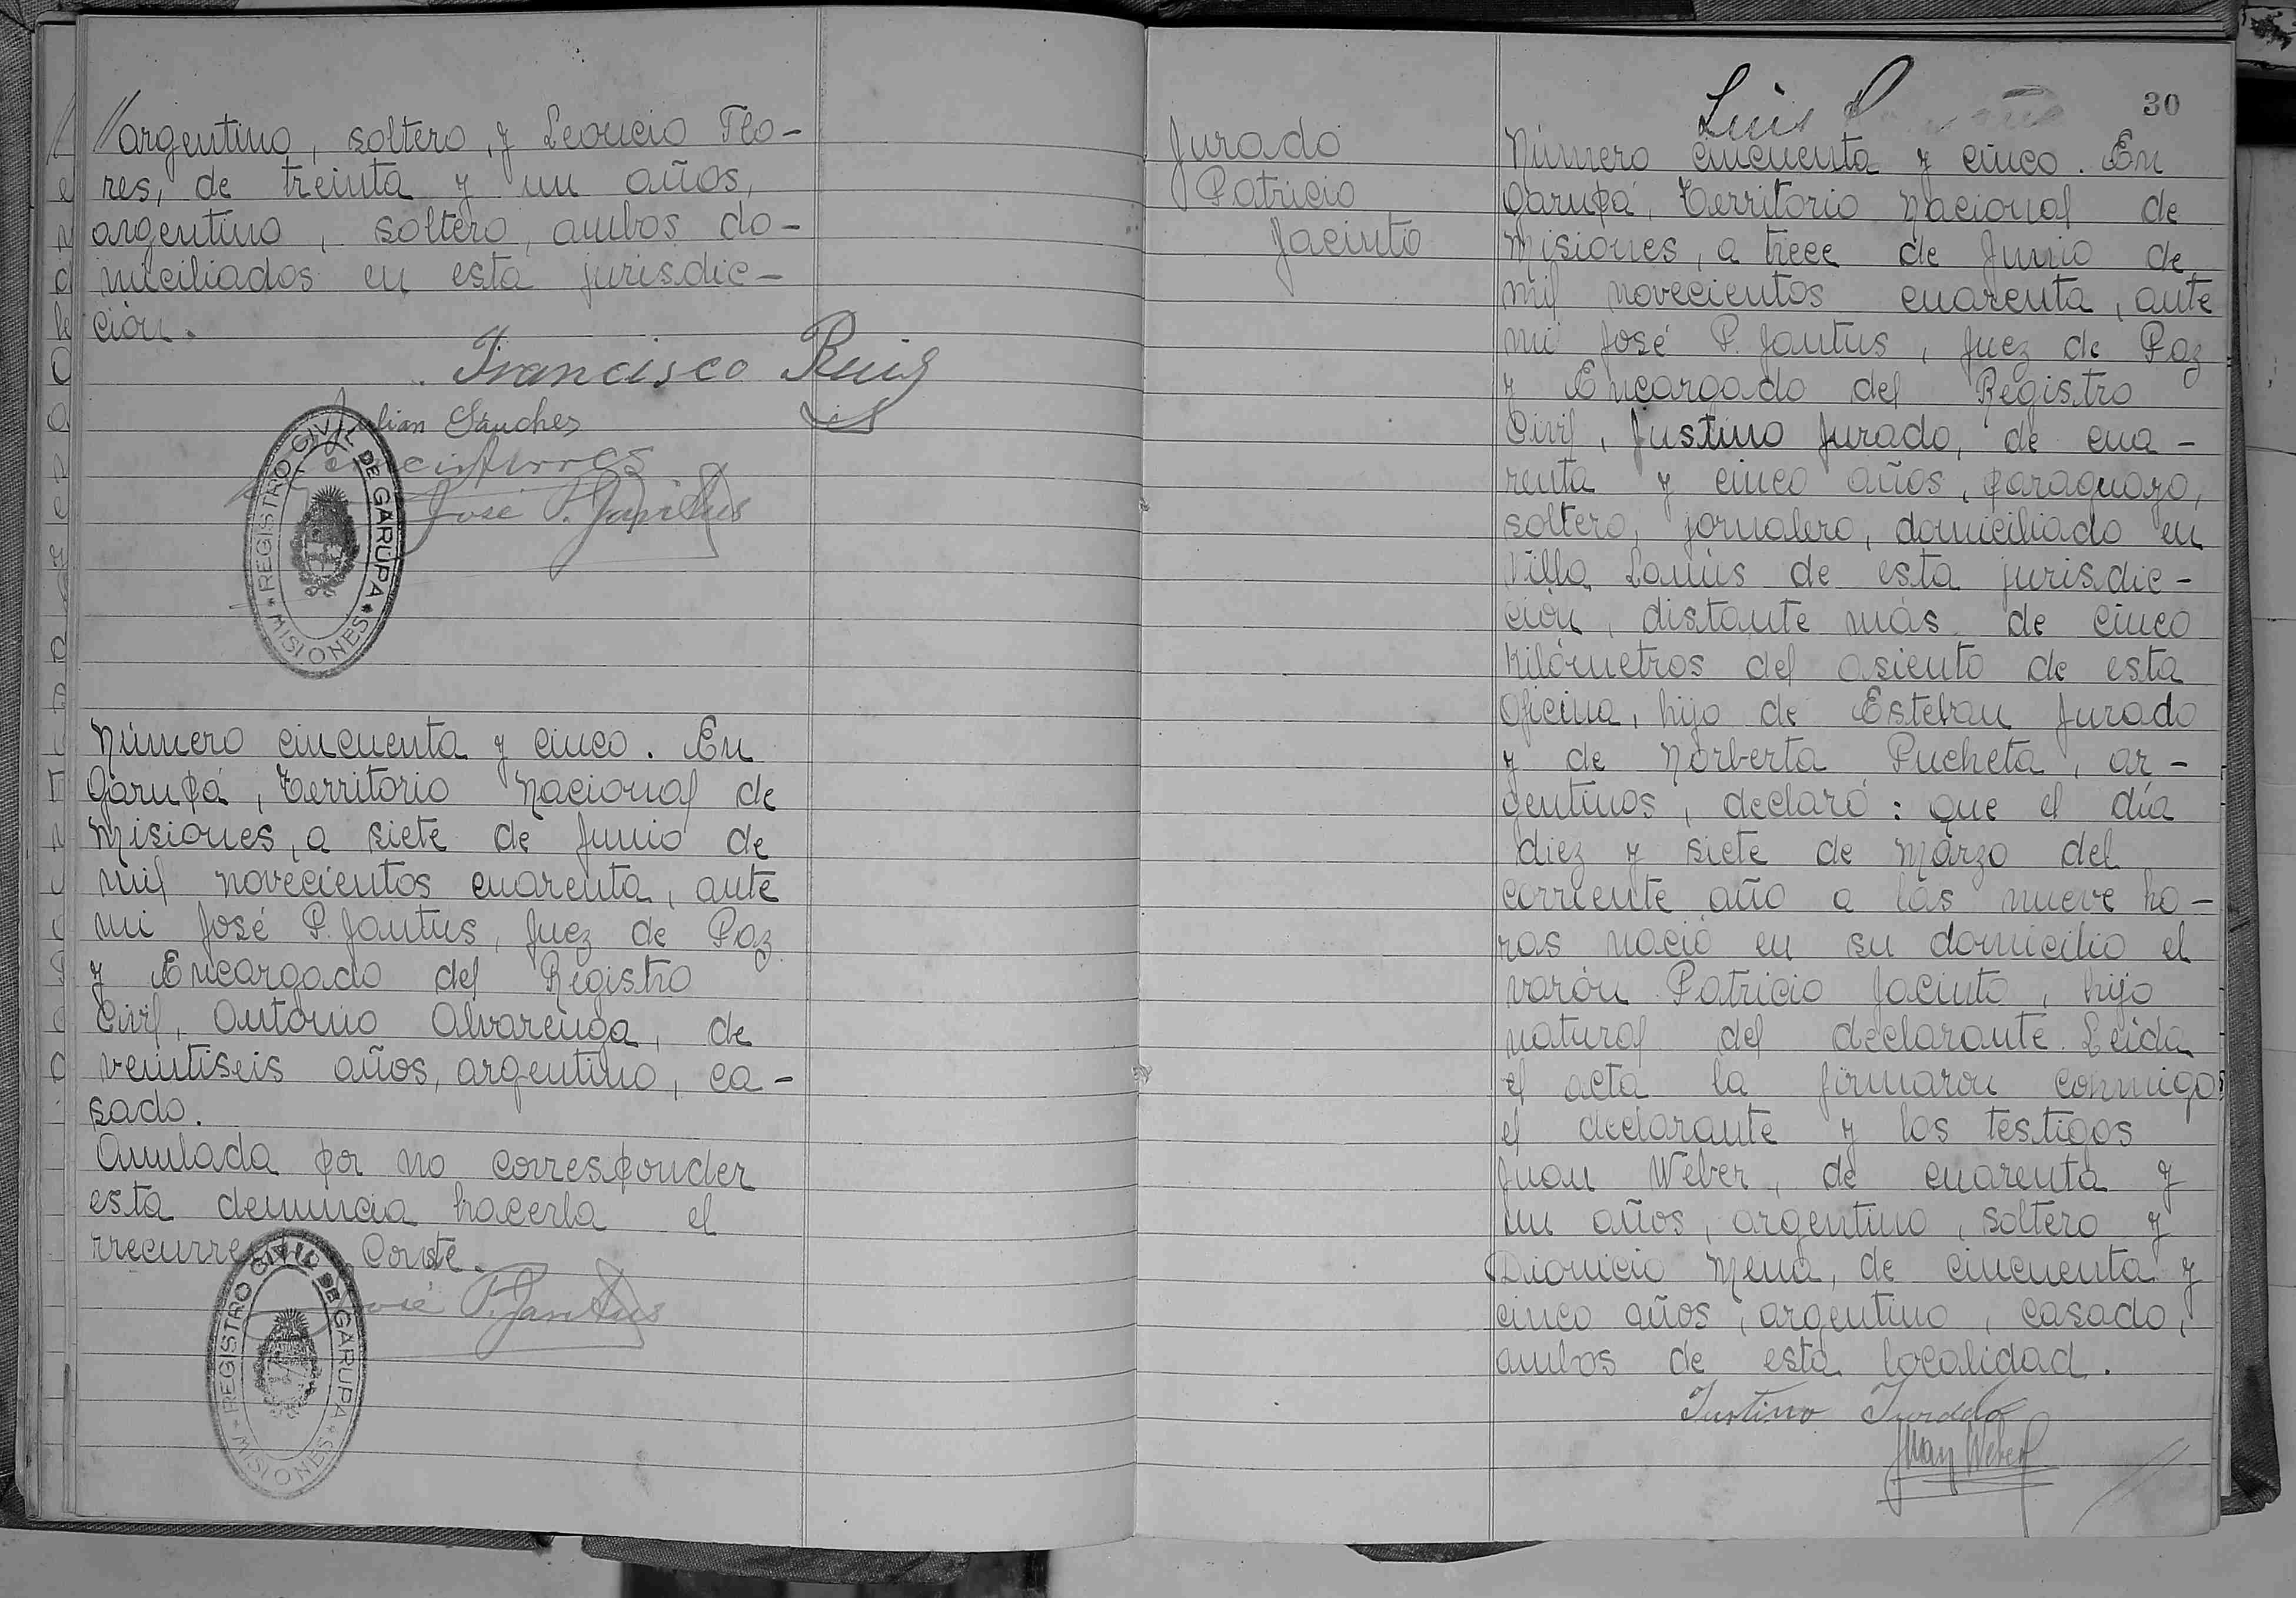 argentino, soltero, y Leoncio Flo-
res, de treinta y un años,
argentino, soltero, ambos do-
miciliados en esta jurisdic-
ción.
Francisco Ruiz
Julian Sanches
José P. Jantus
REGISTRO CIVIL DE GARUPA
* MISIONES *
Número cincuenta y cinco. En
Garupá, Territorio Nacional de
Misiones, a siete de Junio de
mil novecientos cuarenta, ante
mi José P. Jantus, Juez de Paz
y Encargado del Registro
Civil, Antonio Alvarenga, de
veintiseis años, argentino, ca-
sado.
Anulada por no corresponder
esta denuncia hacerla el
Conste.
José P. Jantus
REGISTRO CIVIL DE GARUPA
* MISIONES *
30
Luis
Jurado
Patricio
Jacinto
Número cincuenta y cinco. En
Garupá, Territorio Nacional de
Misiones, a trece de Junio de
mil novecientos cuarenta, ante
mi José P. Jantus, Juez de Paz
y Encargado del Registro
Civil, Justino Jurado, de cua-
renta y cinco años, paraguayo,
soltero, jornalero, domiciliado en
Villa Lanús de esta jurisdic-
ción, distante más de cinco
kilómetros del asiento de esta
Oficina, hijo de Esteban Jurado
y de Norberta Pucheta, ar-
gentinos, declaró: que el día
diez y siete de Marzo del
corriente año a las nueve ho-
ras nació en su domicilio el
varón Patricio Jacinto, hijo
natural del declarante. Leida
el acta la firmaron conmigo
el declarante y los testigos
Juan Weber, de cuarenta y
un años, argentino, soltero y
Dionicio Mena, de cincuenta y
cinco años, argentino, casado,
ambos de esta localidad.
Justino Jurado
Juan Weber